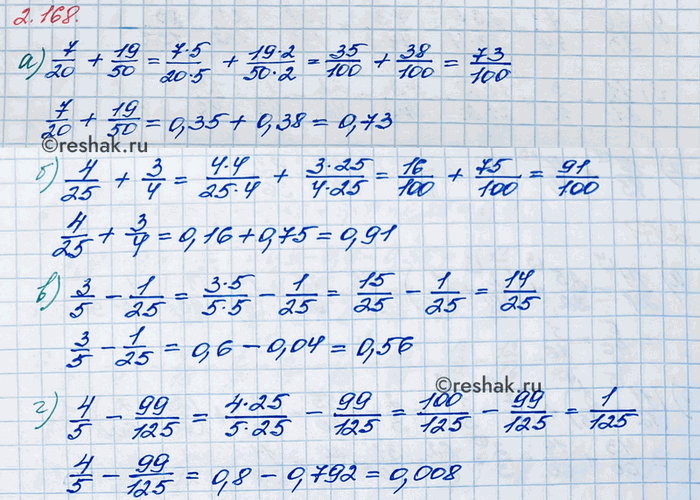 2.168.
а) 7/20 + 19/50 = 7·5/20·5 + 19·2/50·2 = 35/100 + 38/100 = 73/100
7/20 + 19/50 = 0,35 + 0,38 = 0,73
©reshak.ru
б) 4/25 + 3/4 = 4·4/25·4 + 3·25/4·25 = 16/100 + 75/100 = 91/100
4/25 + 3/4 = 0,16 + 0,75 = 0,91
в) 3/5 - 1/25 = 3·5/5·5 - 1/25 = 15/25 - 1/25 = 14/25
3/5 - 1/25 = 0,6 - 0,04 = 0,56
©reshak.ru
г) 4/5 - 99/125 = 4·25/5·25 - 99/125 = 100/125 - 99/125 = 1/125
4/5 - 99/125 = 0,8 - 0,792 = 0,008